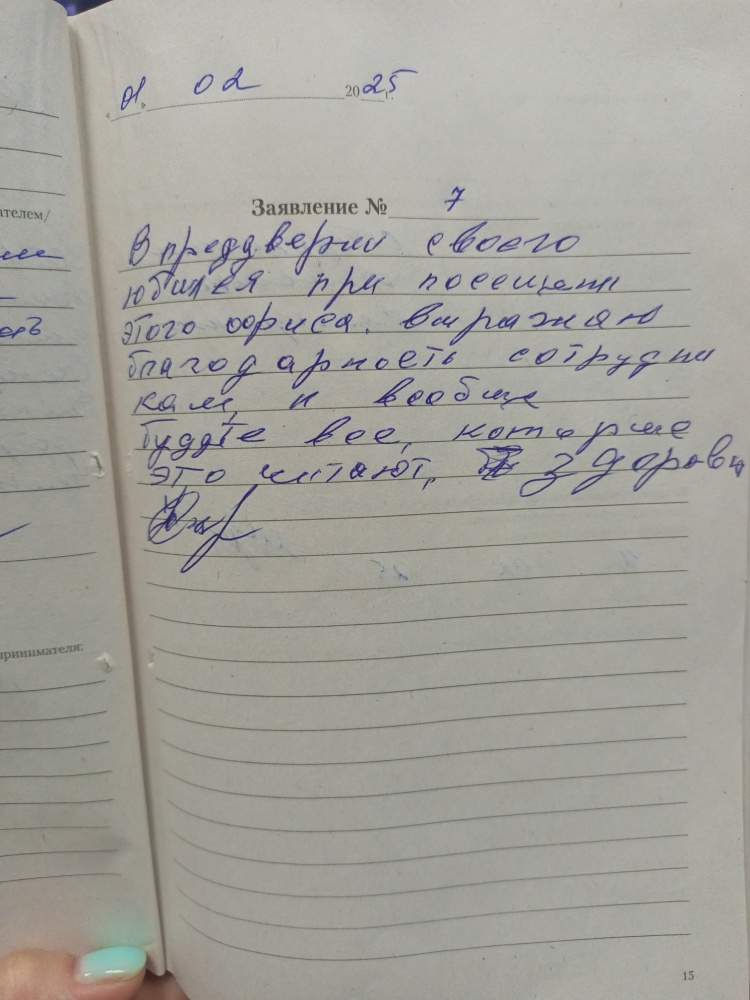 « 01 » 02 2025 г.
Заявление № 7
В преддверии своего
юбилея при посещении
этого офиса. выражаю
благодарность сотрудни
кам, и вообще
Будьте все, которые
это читают, здоровы
ателем/
принимателя:
15